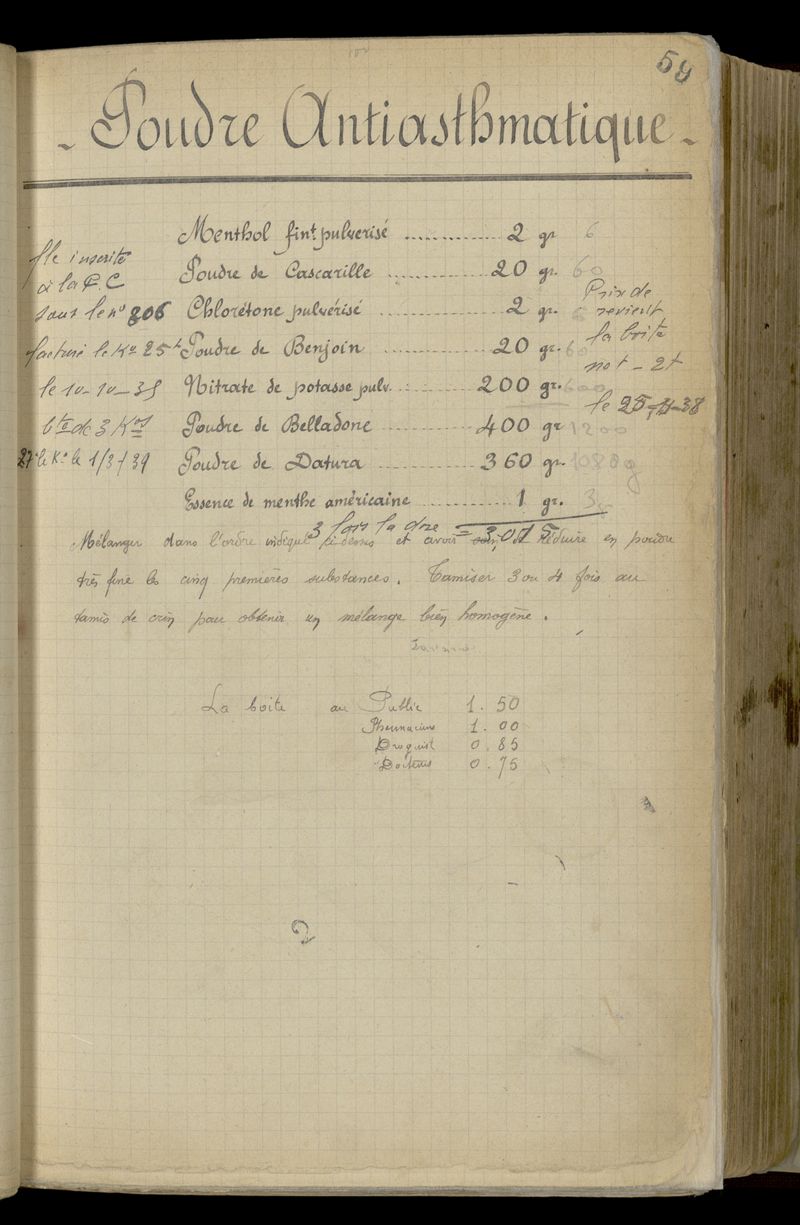 59
- Poudre Antiasthmatique -
Menthol fint. pulverisé ............ 2 gr 6
Poudre de Cascarille ............ 20 gr. 60
Chlorétone pulvérisé ............ 2 gr. 6
Poudre de Benjoin ............ 20 gr. 60
Nitrate de potasse pulv. ............ 200 gr. 600
Poudre de Belladone ............ 400 gr 1200
Poudre de Datura ............ 360 gr. 1080 g
Essence de menthe américaine ............ 1 gr. 3
fle inscrite
à la P.C
sous le no 806
facturé le Ko 25 t
le 10-10-38
bte de 3 Kos
27 le Ko le 1/3/39
Prix de
revient
la boite
net - 2t
le 25-11-38
3 fois la dose = 3,015
Mélanger dans l'ordre indiqué ci dessus et avoir soin de réduire en poudre
très fine les cinq premières substances. Tamiser 3 ou 4 fois au
tamis de crin pour obtenir un mélange bien homogène.
La boite au Public 1.50
Pharmaciens 1.00
Droguist 0.85
Docteurs 0.75